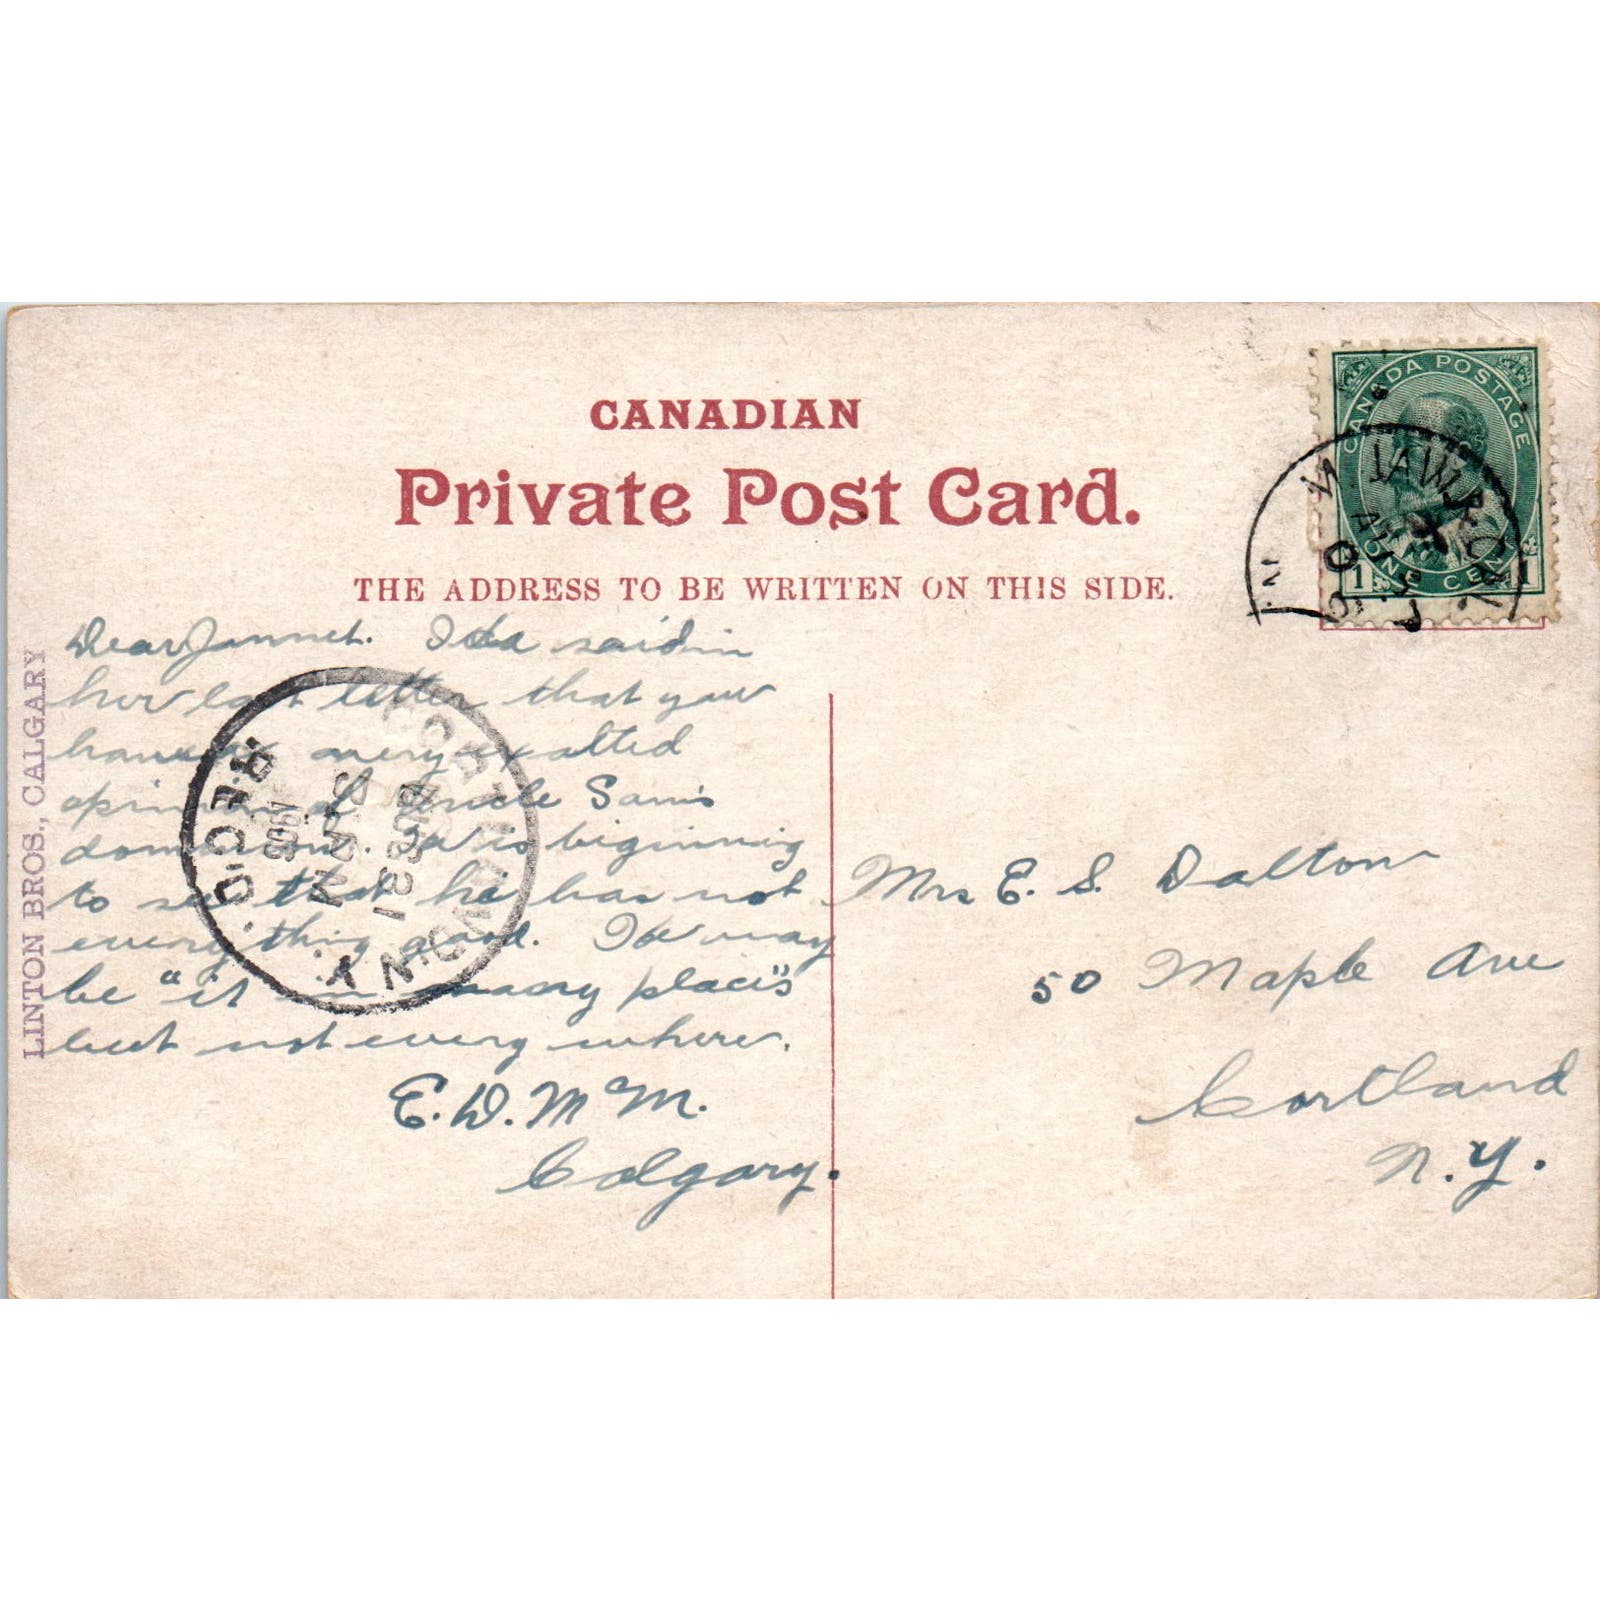 CANADIAN
Private Post Card.
THE ADDRESS TO BE WRITTEN ON THIS SIDE.
LINTON BROS., CALGARY
CANADA POSTAGE
1 ONE CENT 1
REC'D.
AUG 31
1905
N.Y.
Dear Jannet. Ida said in
her last letter that you
have a very exalted
opinion of Uncle Sam's
dominions. Ed is biginning
to see that he has not
everything good. It may
be "it in many places"
but not every where.
E. D. M M.
Calgary.
Mrs E. S. Dalton
50 Maple Ave
Cortland
N.Y.